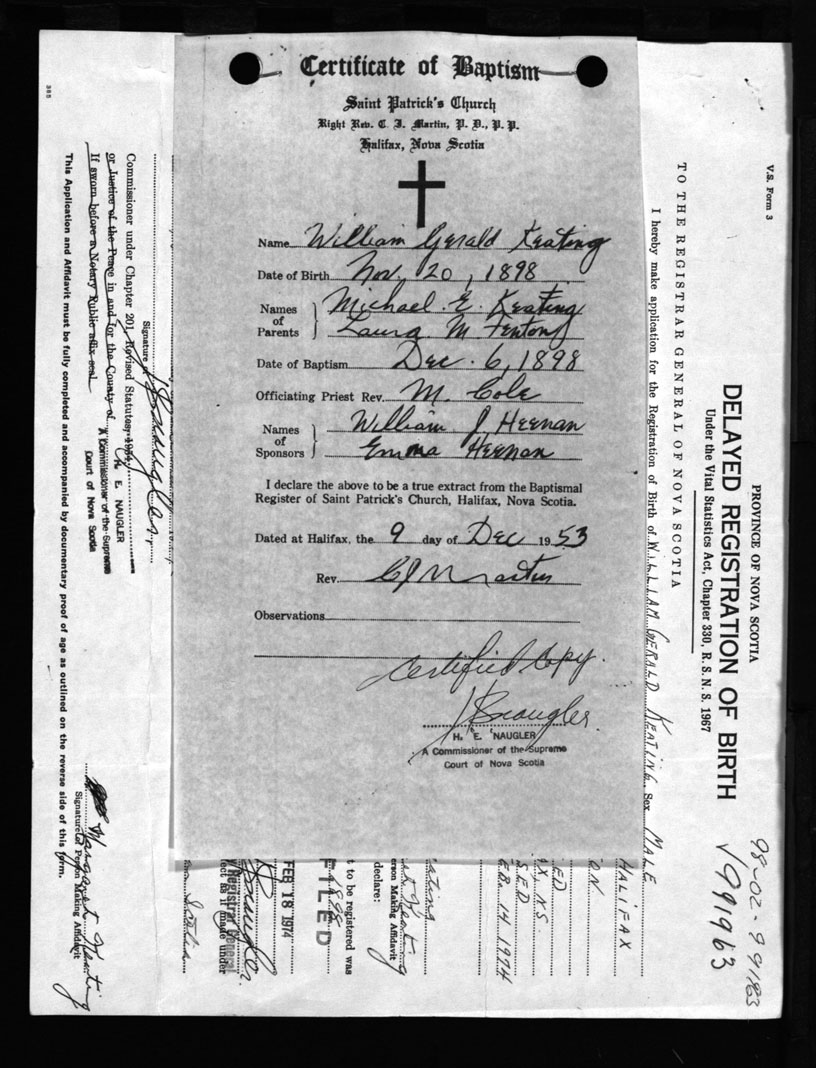 Certificate of Baptism
Saint Patrick's Church
Right Rev. C. J. Martin, P. D., P. P.
Halifax, Nova Scotia
Name William Gerald Keating
Date of Birth Nov. 20, 1898
Names of Parents } Michael E. Keating
Laura M Fenton
Date of Baptism Dec. 6, 1898
Officiating Priest Rev. M. Cole
Names of Sponsors } William J Heenan
Emma Heenan
I declare the above to be a true extract from the Baptismal
Register of Saint Patrick's Church, Halifax, Nova Scotia.
Dated at Halifax, the 9 day of Dec 1953
Rev. C J Martin
Observations
Certified Copy.
H. E. NAUGLER
A Commissioner of the Supreme
Court of Nova Scotia
V.S. Form 3
PROVINCE OF NOVA SCOTIA
DELAYED REGISTRATION OF BIRTH
Under the Vital Statistics Act, Chapter 330, R.S.N.S. 1967
98-02-99183
991963
TO THE REGISTRAR GENERAL OF NOVA SCOTIA
I hereby make application for the Registration of Birth of WILLIAM GERALD KEATING Sex MALE
HALIFAX
ON
ED
X. N.S.
SED
EB. 14 1974
ating
erson Making Affidavit
declare:
t to be registered was
1898
FILED
FEB 18 1974
Registrar General
lect as if made under
Signature of
Commissioner under Chapter 201, Revised Statutes, 1954
or Justice of the Peace in and for the County of
If sworn before a Notary Public affix seal
H. E. NAUGLER
A Commissioner of the Supreme
Court of Nova Scotia
Margaret Keating
Signature of Person Making Affidavit
This Application and Affidavit must be fully completed and accompanied by documentary proof of age as outlined on the reverse side of this form.